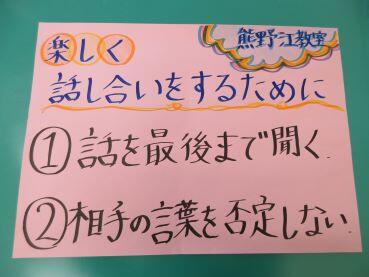 楽しく
熊野江教室
話し合いをするために
①話を最後まで聞く.
②相手の言葉を否定しない.